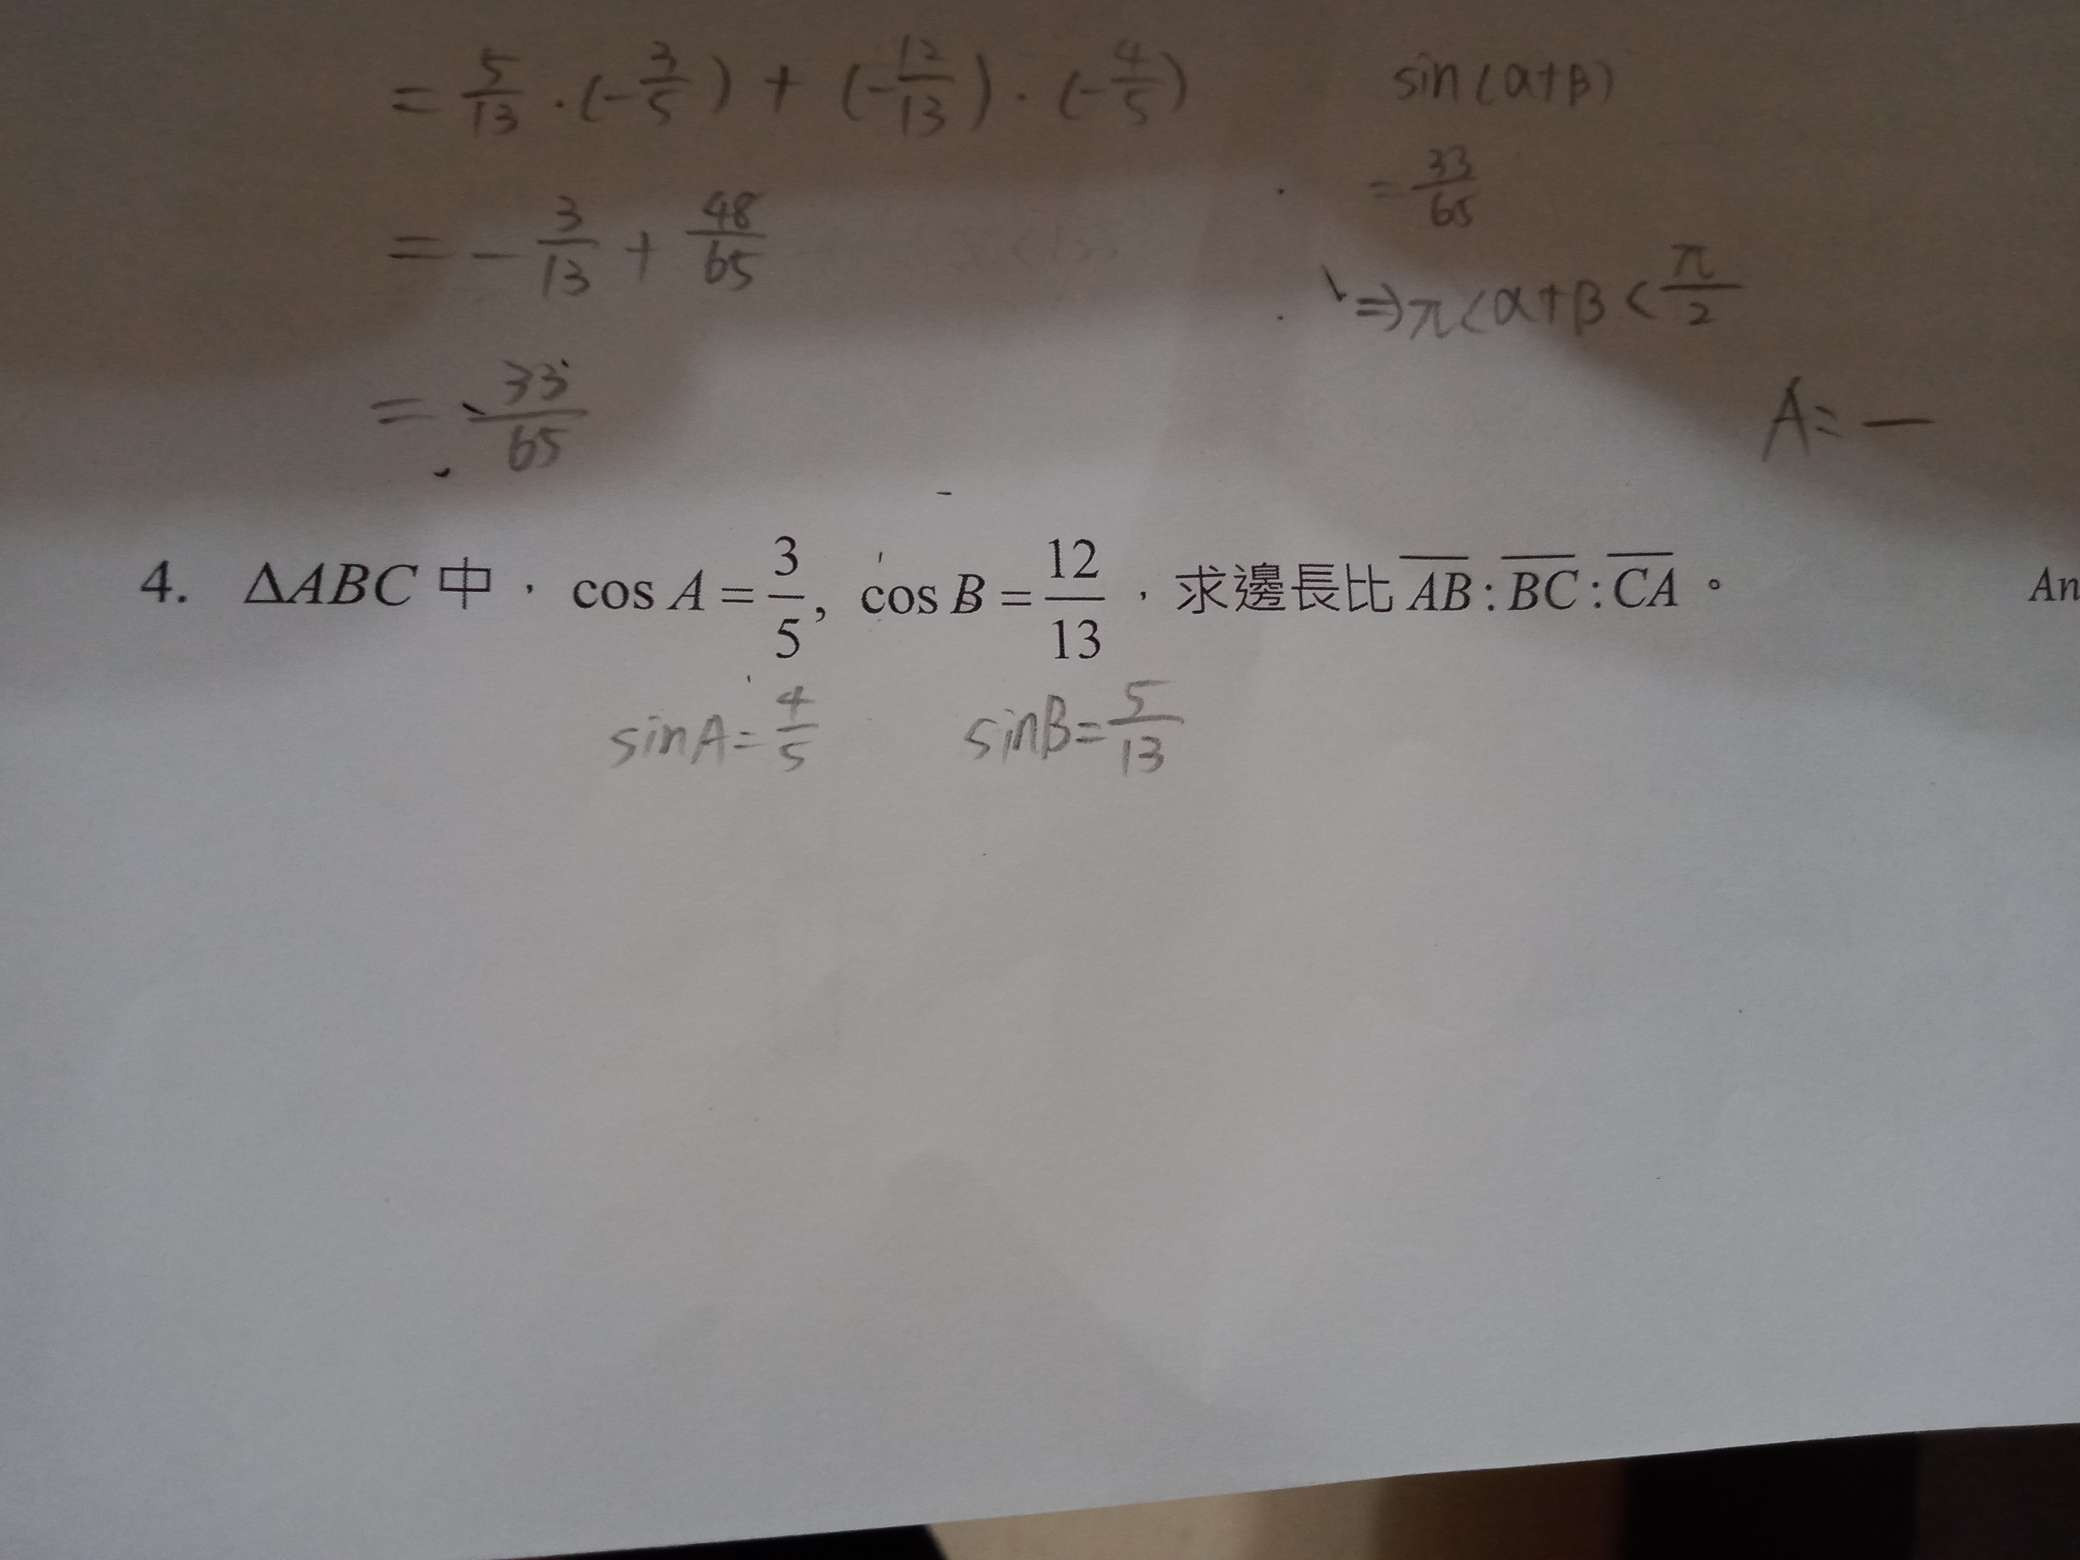 = 5/13 · (-3/5) + (-12/13) · (-4/5)
sin(α+β)
= -3/13 + 48/65
= 33/65
⇒ π < α+β < π/2
= 33/65
A = —
4. ΔABC 中，cos A = 3/5, cos B = 12/13，求邊長比 \overline{AB} : \overline{BC} : \overline{CA}。
An
sinA = 4/5 sinB = 5/13